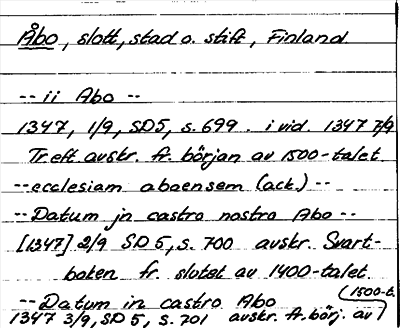 Åbo, slott, stad o. stift, Finland.
-- ii Abo --
1347, 1/9, SD5, s. 699. i vid. 1347 7/9
Tr. eft avskr. fr. början av 1500-talet
-- ecclesiam aboensem (ack.) --
-- Datum jn castro nostro Abo --
[1347] 2/9 SD 5, s. 700 avskr. Svart-
boken fr. slutet av 1400-talet.
-- Datum in castro Abo
(1500-t.
1347 3/9, SD 5, s. 701 avskr. fr. börj. av